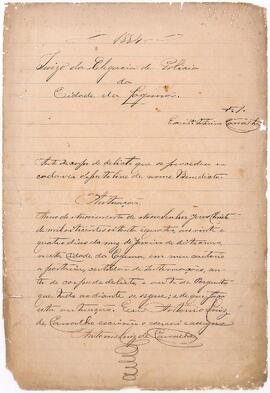 1884
Juizo da Delegacia de Policia
da
Cidade da Laguna.
Fl. 1
Escrivão Carvalho
Auto de corpo de delicto que se procedeu no
cadaver do preto livre de nome Benedicto
Autuação
Anno do Nascimento de Nosso Senhor Jesus Christo
de mil oitocentos oitenta e quatro, aos vinte e
quatro dias do mez de do dito anno,
nesta Cidade da Laguna, em meu cartorio
a portaria, certidão de intimação, au-
to de corpo de delicto, e auto de pergunta
que tudo ao diante se segue; e de que faço
esta autuação. Eu Antonio Luiz
de Carvalho escrivão o escrevi e assigno
Antonio Luiz de Carvalho